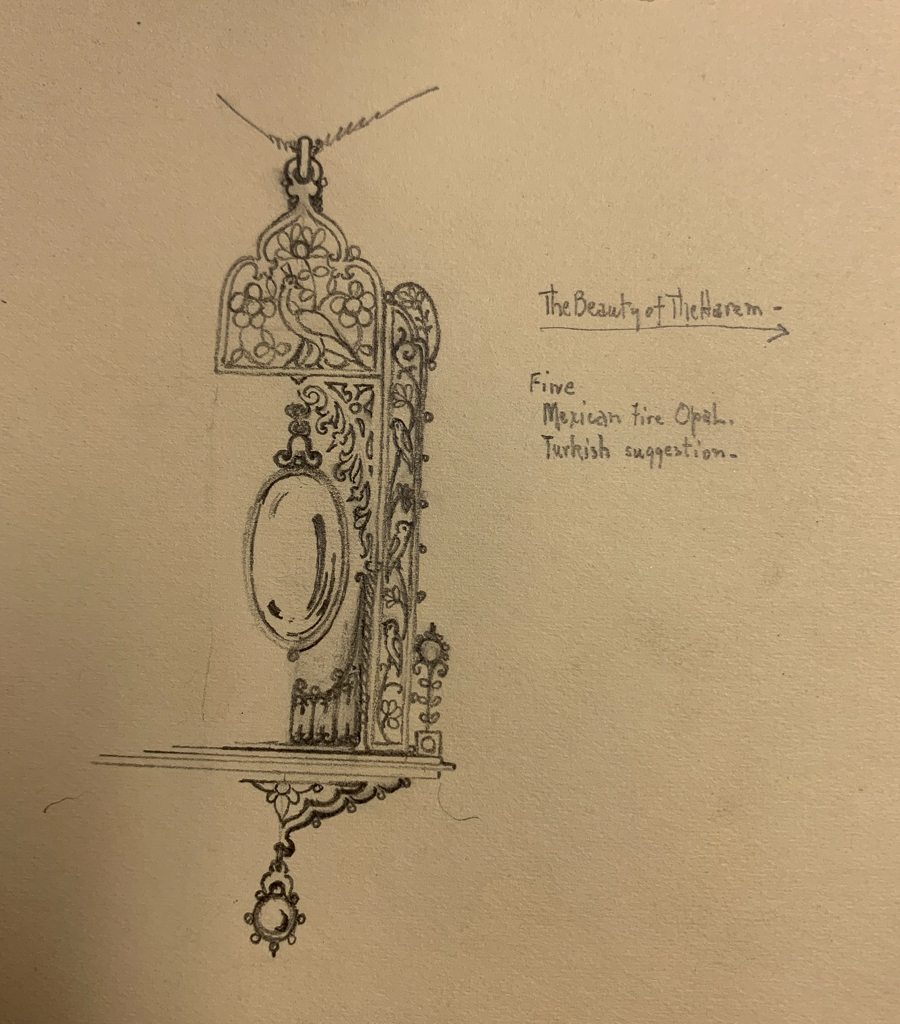 The Beauty of The Harem -
Fine
Mexican Fire Opal.
Turkish suggestion -